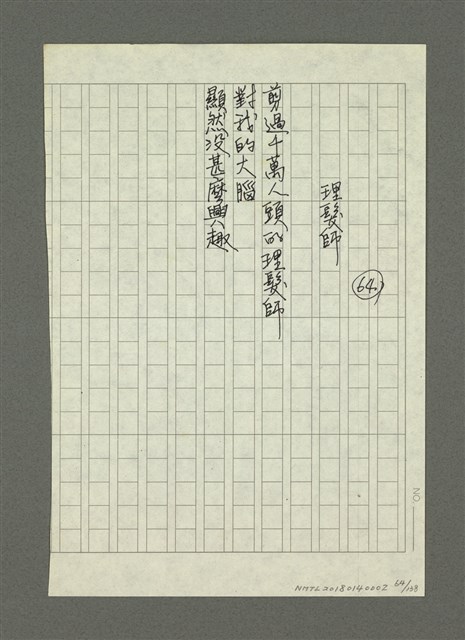 64
理髮師
剪過千萬人頭的理髮師
對我的大腦
顯然没甚麼興趣
NO.
NMTL20180140002 64/158